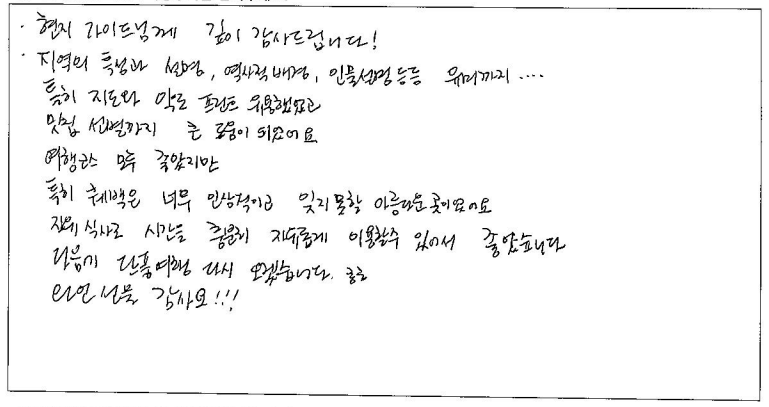 · 현지 가이드님께 깊이 감사드립니다!
· 지역의 특성과 설명, 역사적 배경, 인물설명 등등 유머까지 ....
특히 지도와 약도 프린트 유용했었고
맛집 선별까지 큰 도움이 되었어요
여행코스 모두 좋았지만
특히 퀘백은 너무 인상적이고 잊지못할 아름다운 곳이였어요
자유식사로 시간을 충분히 자유롭게 이용할수 있어서 좋았습니다
다음기 단풍여행 다시 오겠습니다.
와인 선물 감사요!!!